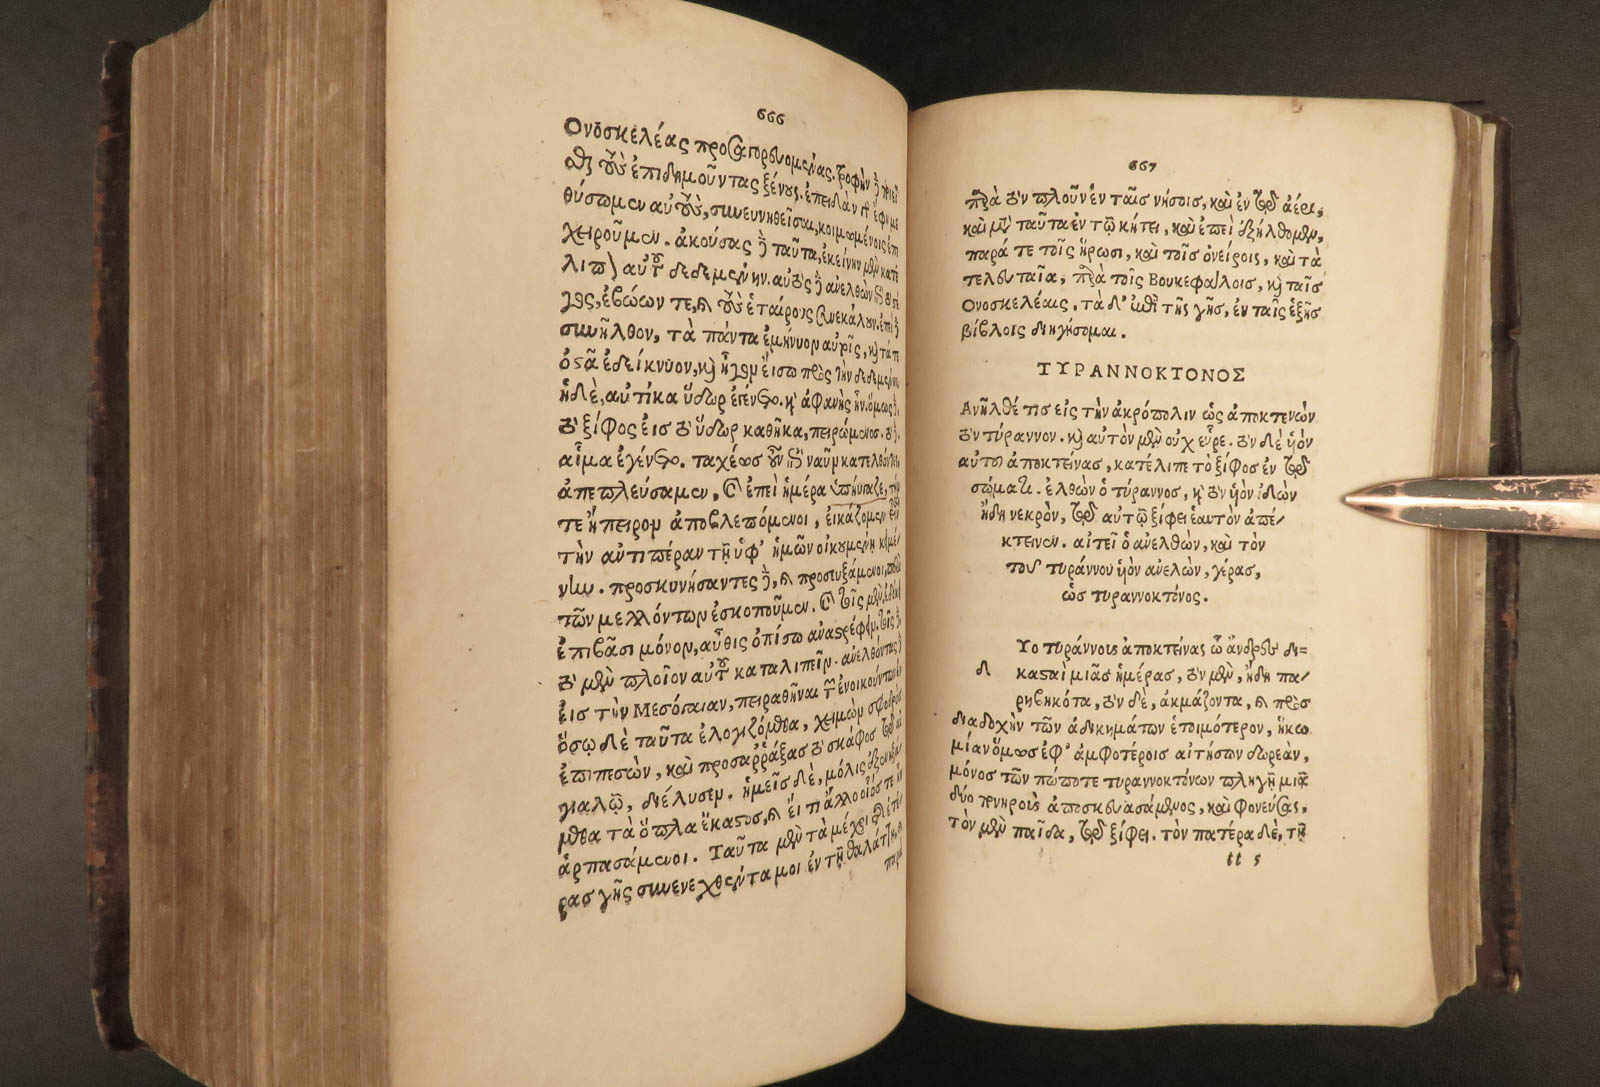 666
Ὀνοσκελέας προσαγορευομένας. τροφὴν δὲ ποιεῖ
σθαι τοὺς ἐπιδημοῦντας ξένους. ἐπειδὰν γὰρ ἔφη με
θύσωμεν αὐτοὺς, συνευνηθεῖσαι, κοιμωμένοις ἐπι
χειροῦμεν. ἀκούσας δὲ ταῦτα, ἐκείνην μὲν κατέ
λιπον αὐτοῦ δεδεμένην. αὐτὸς δὲ ἀνελθὼν ἐπὶ τὸ τέ
γος, ἐβόων τε, καὶ τοὺς ἑταίρους συνεκάλουν. ἐπεὶ δὲ
συνῆλθον, τὰ πάντα ἐμήνυον αὐτοῖς, καὶ τά τε
ὀστᾶ ἐδείκνυον, καὶ ἦγον εἴσω πρὸς τὴν δεδεμένην,
ἡ δὲ, αὐτίκα ὕδωρ ἐγένετο. καὶ ἀφανὴς ἦν. ὅμως δὲ
τὸ ξίφος εἰς τὸ ὕδωρ καθῆκα, πειρώμενος. τὸ δὲ
αἷμα ἐγένετο. ταχέως οὖν ἐπὶ ναῦν κατελθόντες,
ἀπεπλεύσαμεν, καὶ ἐπεὶ ἡμέρα ὑπηύγαζε, τήν
τε ἤπειρον ἀποβλεπόμενοι, εἰκάζομεν εἶναι
τὴν ἀντιπέραν τῇ ὑφ' ἡμῶν οἰκουμένῃ κειμέ
νην. προσκυνήσαντες δὲ, καὶ προσευξάμενοι, περὶ
τῶν μελλόντων ἐσκοποῦμεν. καὶ τοῖς μὲν, ἐδόκει
ἐπιβᾶσι μόνον, αὖθις ὀπίσω ἀναστρέφειν. τοῖς δὲ,
τὸ μὲν πλοῖον αὐτοῦ καταλιπεῖν. ἀνελθόντας δὲ
εἰς τὴν Μεσόγαιαν, πειραθῆναι τῶν ἐνοικούντων. ἐν
ὅσῳ δὲ ταῦτα ἐλογιζόμεθα, χειμὼν σφοδρὸς
ἐπιπεσὼν, καὶ προσαρράξας τὸ σκάφος τῷ αἰ
γιαλῷ, διέλυσεν. ἡμεῖς δὲ, μόλις ἐξενηξά
μεθα τὰ ὅπλα ἕκαστος, καὶ εἴ τι ἄλλο οἷός τε ἦν
ἁρπασάμενοι. Ταῦτα μὲν τὰ μέχρι τῆς ἑτέ
ρας γῆς συνενεχθέντα μοι ἐν τῇ θαλάττῃ, καὶ
παρὰ
667
παρὰ τὸν πλοῦν ἐν ταῖς νήσοις, καὶ ἐν τῷ ἀέρι,
καὶ μετὰ ταῦτα ἐν τῷ κήτει, καὶ ἐπεὶ ἐξήλθομεν,
παρά τε τοῖς ἥρωσι, καὶ τοῖς ὀνείροις, καὶ τὰ
τελευταῖα, παρὰ τοῖς Βουκεφάλοις, καὶ ταῖς
Ὀνοσκελέαις. τὰ δ' ἐπὶ τῆς γῆς, ἐν ταῖς ἑξῆς
βίβλοις διηγήσομαι.
ΤΥΡΑΝΝΟΚΤΟΝΟΣ
Ἀνῆλθέ τις εἰς τὴν ἀκρόπολιν ὡς ἀποκτενῶν
τὸν τύραννον. καὶ αὐτὸν μὲν οὐχ εὗρε. τὸν δὲ υἱὸν
αὐτοῦ ἀποκτείνας, κατέλιπε τὸ ξίφος ἐν τῷ
σώματι. ἐλθὼν ὁ τύραννος, καὶ τὸν υἱὸν ἰδὼν
ἤδη νεκρὸν, τῷ αὐτῷ ξίφει ἑαυτὸν ἀπέ/
κτεινεν. αἰτεῖ ὁ ἀνελθὼν, καὶ τὸν
τοῦ τυράννου υἱὸν ἀνελὼν, γέρας,
ὡς τυραννοκτόνος.
Υο τυράννους ἀποκτείνας ὦ ἄνδρες δι=
δ κασταὶ μιᾶς ἡμέρας, τὸν μὲν, ἤδη πα/
ρηβηκότα, τὸν δὲ, ἀκμάζοντα, καὶ πρὸς
διαδοχὴν τῶν ἀδικημάτων ἑτοιμότερον, ἥκω
μίαν ὅμως ἐφ' ἀμφοτέροις αἰτήσων δωρεὰν,
μόνος τῶν πώποτε τυραννοκτόνων πληγῇ μιᾷ
δύο πονηροὺς ἀποσκευασάμενος, καὶ φονεύσας,
τὸν μὲν παῖδα, τῷ ξίφει. τὸν πατέρα δὲ, τῇ
tt 5